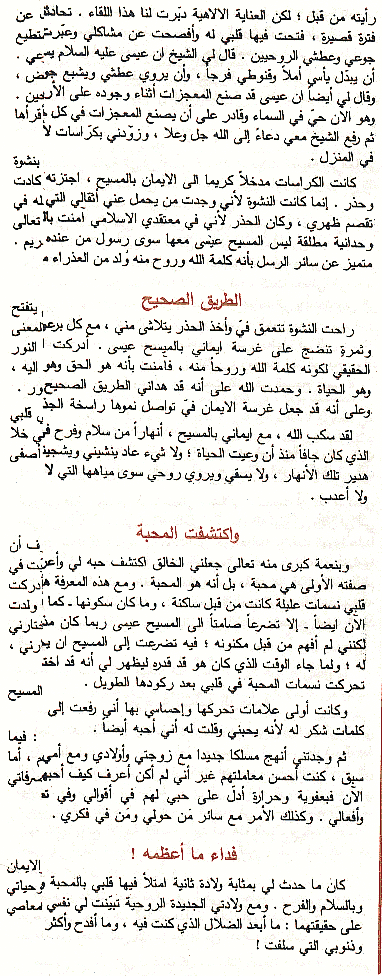 رأيته من قبل ؛ لكن العناية الالاهية دبّرت لنا هذا اللقاء . تحادثنا عن
فترة قصيرة ، فتحت فيها قلبي له وأفصحت عن مشاكلي وعبّرت
جوعي وعطشي الروحيين . قال لي الشيخ ان عيسى عليه السلام يستطيع
أن يبدّل يأسي أملاً وقنوطي فرجاً ، وأن يروي عطشي ويشبع جوعي .
وقال لي أيضاً ان عيسى قد صنع المعجزات أثناء وجوده على الأرض ،
وهو الآن حيّ في السماء وقادر على أن يصنع المعجزات في كل
ثم رفع الشيخ معي دعاءً إلى الله جل وعلا ، وزوّدني بكراسات لأقرأها
في المنزل .
كانت الكراسات مدخلاً كريما الى الايمان بالمسيح ، اجتزته بنشوة
وحذر . إنما كانت النشوة لأني وجدت من يحمل عني أثقالي التي كادت
تقصم ظهري ، وكان الحذر لأني في معتقدي الاسلامي آمنت بالله في
وحدانية مطلقة ليس المسيح عيسى معها سوى رسول من عنده تعالى
متميز عن سائر الرسل بأنه كلمة الله وروح منه وُلد من العذراء مريم .
الطريق الصحيح
راحت النشوة تتعمق فيّ وأخذ الحذر يتلاشى مني ، مع كل برعم يتفتح
وثمرة تنضج على غرسة ايماني بالمسيح عيسى . أدركت المعنى
الحقيقي لكونه كلمة الله وروحاً منه ، فآمنت بأنه هو الحق وهو النور
وهو الحياة . وحمدت الله على أنه قد هداني الطريق الصحيح اليه ،
وعلى أنه قد جعل غرسة الايمان فيّ تواصل نموها راسخة الجذور .
لقد سكب الله ، مع ايماني بالمسيح ، أنهاراً من سلام وفرح في قلبي
الذي كان جافاً منذ أن وعيت الحياة ؛ ولا شيء عاد ينشيني ويشجيني خلا
هدير تلك الأنهار ، ولا يسقي ويروي روحي سوى مياهها التي لا أصفى
ولا أعذب .
واكتشفت المحبة
وبنعمة كبرى منه تعالى جعلني الخالق اكتشف حبه لي وأعرف أن
صفته الأولى هي محبة ، بل أنه هو المحبة . ومع هذه المعرفة هبّت في
قلبي نسمات عليلة كانت من قبل ساكنة ، وما كان سكونها ـ كما أدركت
الآن أيضاً ـ إلا تضرعاً صامتاً الى المسيح عيسى ربما كان منذ ولدت
لكنني لم أفهم من قبل مكنونه ؛ فيه تضرعت إلى المسيح ان يختارني
له ؛ ولما جاء الوقت الذي كان هو قد قدره ليظهر لي أنه قد اختارني ،
تحركت نسمات المحبة في قلبي بعد ركودها الطويل .
وكانت أولى علامات تحركها وإحساسي بها أني رفعت إلى المسيح
كلمات شكر له لأنه يحبني وقلت له أني أحبه أيضاً .
ثم وجدتني أنهج مسلكا جديدا مع زوجتي وأولادي ومع أمي ؛ فيما
سبق ، كنت أحسن معاملتهم غير أني لم أكن أعرف كيف أحبهم ، أما
الآن فبعفوية وحرارة أدلّ على حبي لهم في أقوالي وفي تصرفاتي
وأفعالي . وكذلك الأمر مع سائر مَن حولي ومَن في فكري .
فداء ما أعظمه !
كان ما حدث لي بمثابة ولادة ثانية امتلأ فيها قلبي بالمحبة والايمان
وبالسلام والفرح . ومع ولادتي الجديدة الروحية تبيّنت لي نفسي وحياتي
على حقيقتهما : ما أبعد الضلال الذي كنت فيه ، وما أفدح وأكثر معاصي
وذنوبي التي سلفت !